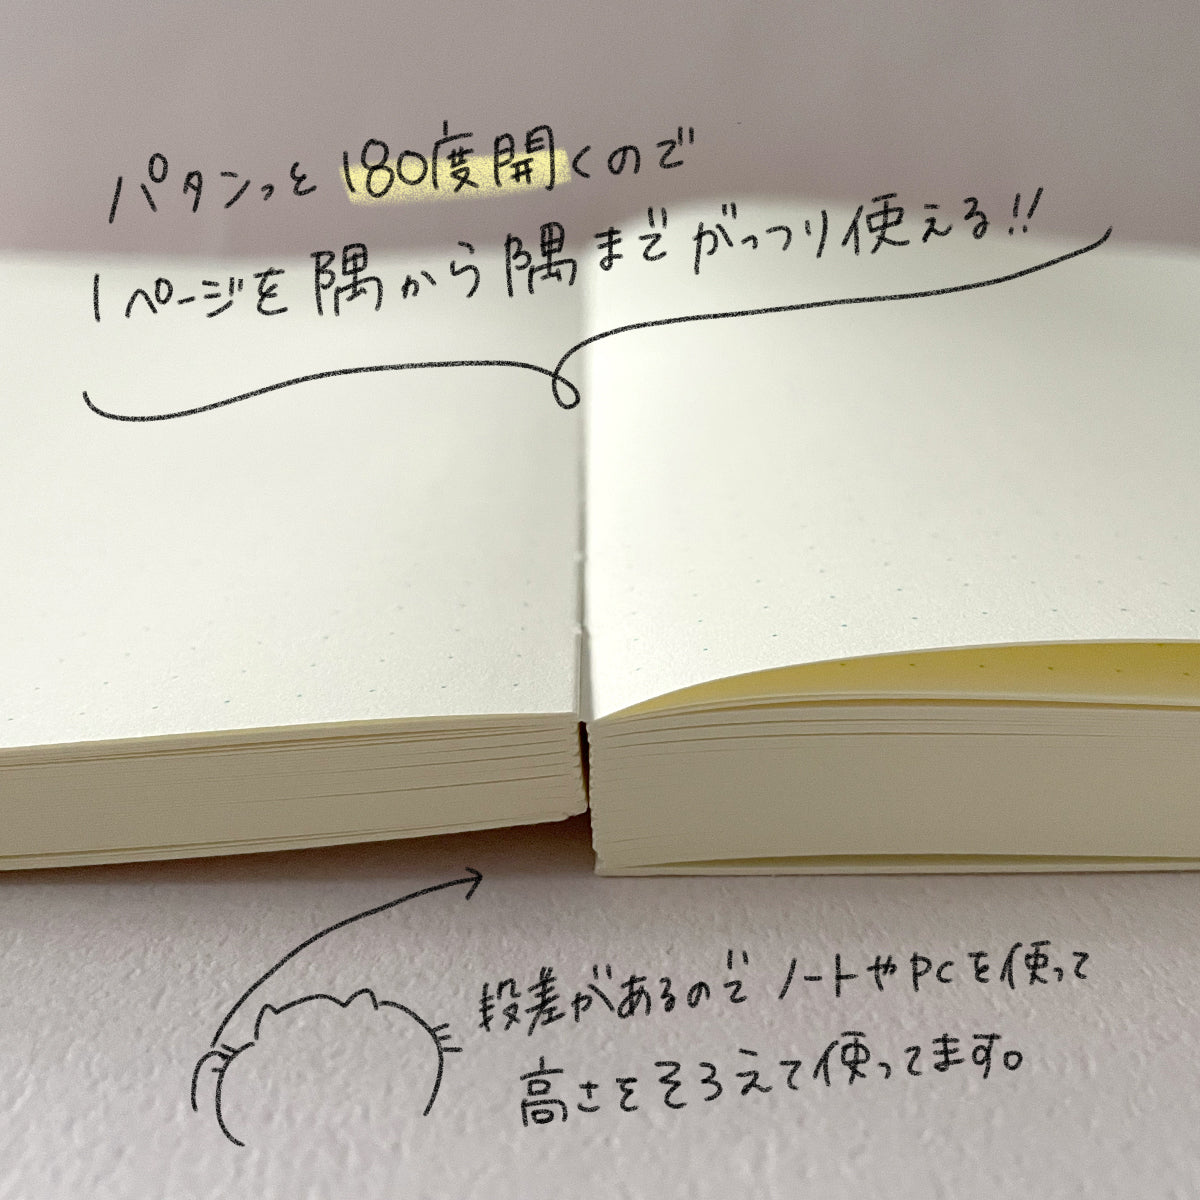 パタンっと180度開くので
1ページを隅から隅までがっつり使える!!
段差があるのでノートやPCを使って
高さをそろえて使ってます。